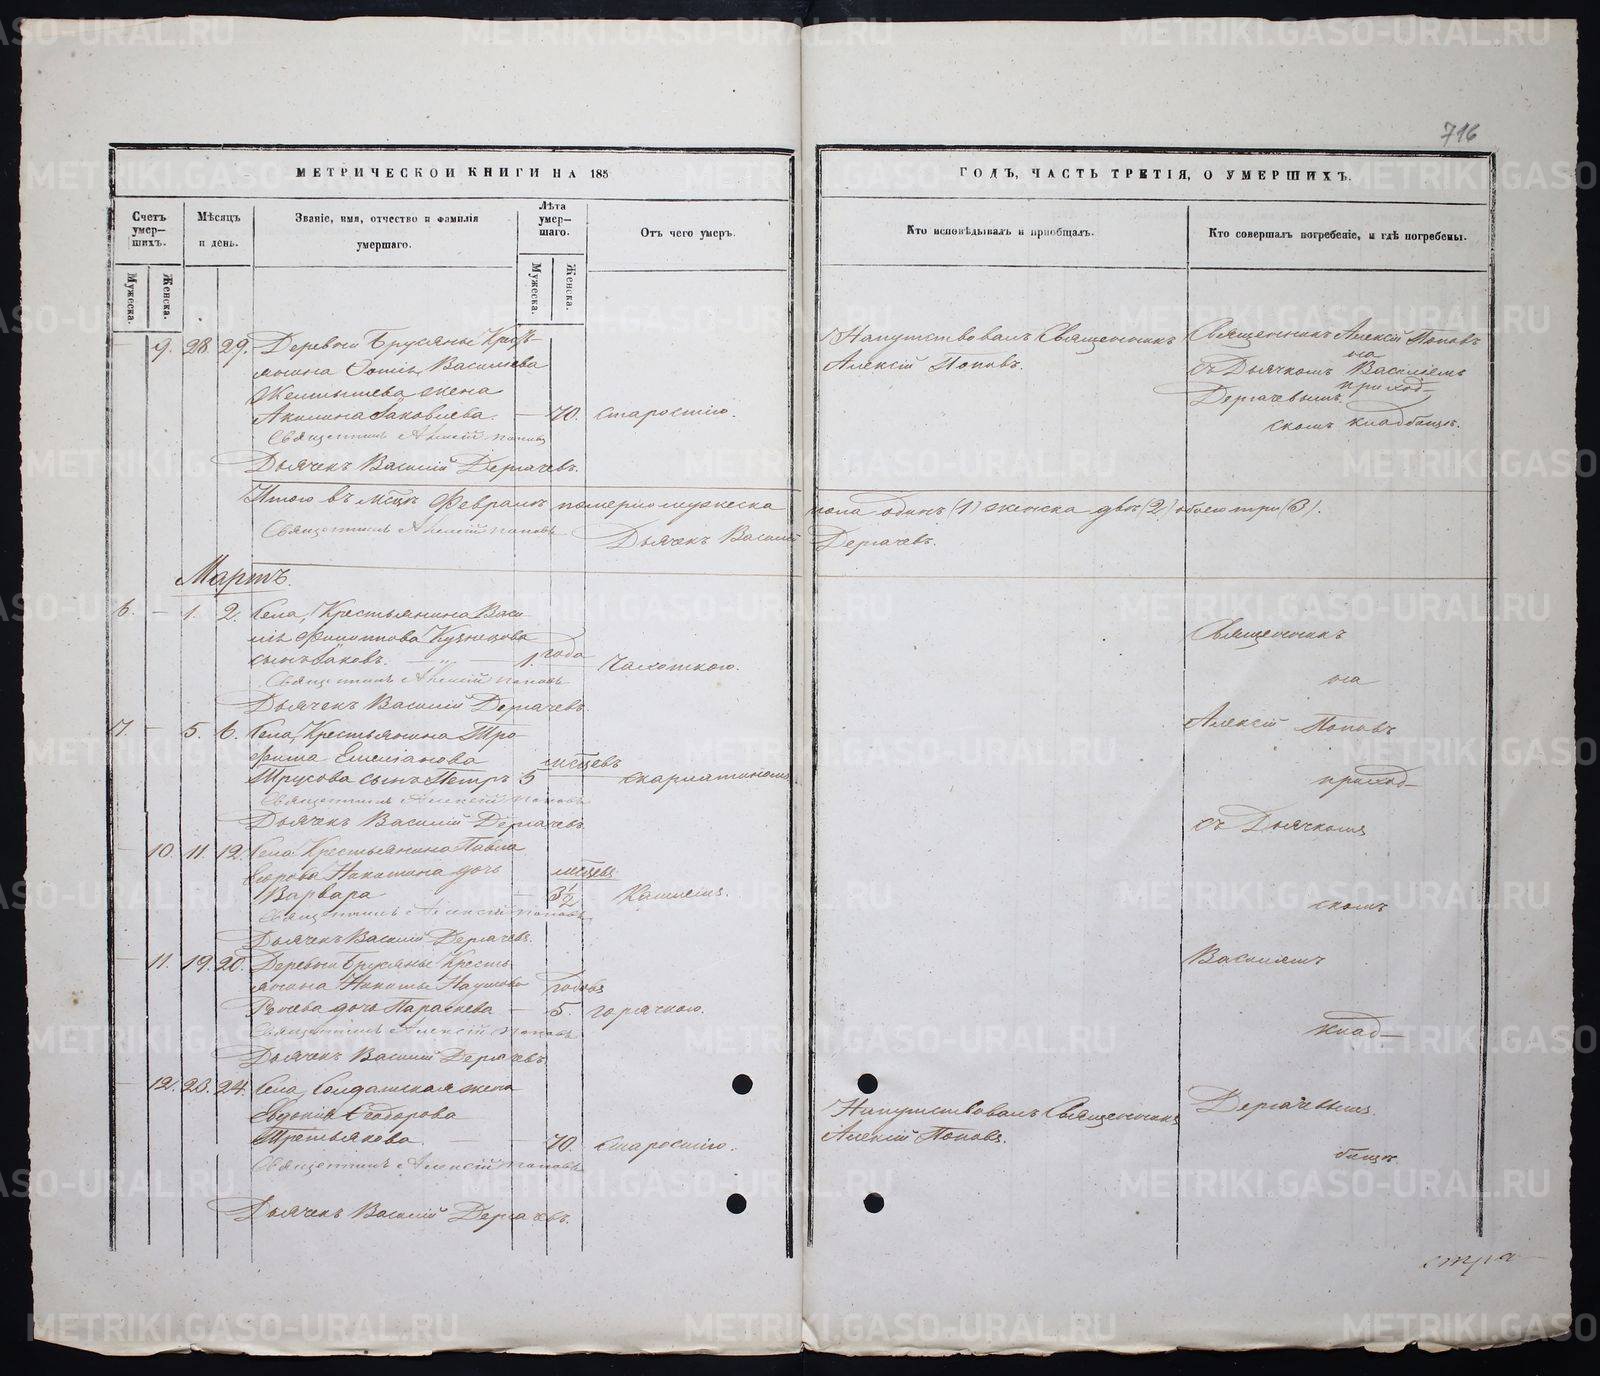 716
МЕТРИЧЕСКОЙ КНИГИ НА 185
ГОДЪ, ЧАСТЬ ТРЕТІЯ, О УМЕРШИХЪ.
Счетъ умер-шихъ.
Мѣсяцъ и день.
Званіе, имя, отчество и фамилія умершаго.
Лѣта умер-шаго.
Отъ чего умеръ.
Кто исповѣдывалъ и пріобщалъ.
Кто совершалъ погребеніе, и гдѣ погребены.
Мужеска.
Женска.
Мужеска.
Женска.
9. 28 29. Деревни Брусяны Кресть-
янина Василіева
жена
Акилина Іаковлева. — 70. старостію.
Священникъ Алексій Поповъ
Дьячекъ Василій Дергачевъ.
Напутствовалъ Священникъ
Алексій Поповъ.
Священникъ Алексій Поповъ
на
съ Дьячкомъ Василіемъ
приход-
Дергачевымъ.
скомъ кладбищѣ.
Итого въ мсцѣ Февралѣ померло мужеска пола одинъ (1) женска двѣ (2) обоего три (3).
Священникъ Алексій Поповъ
Дьячекъ Василій Дергачевъ.
Мартъ.
6. — 1. 2. Села, Крестьянина Васи-
лія Филиппова Кузнецова
сынъ Іаковъ. — 1. года чахоткою.
Священникъ Алексій Поповъ
Дьячекъ Василій Дергачевъ.
7. — 5. 6. Села, Крестьянина Тро-
фима Емеліанова мсцевъ
Трусова сынъ Петръ 5 скарлатиномъ
Священникъ Алексій Поповъ
Дьячекъ Василій Дергачевъ.
— 10. 11. 12. Села Крестьянина Павла
Никитина дочь мсцевъ
Варвара — 3½ Кашлемъ.
Священникъ Алексій Поповъ
Дьячекъ Василій Дергачевъ.
— 11. 19. 20. Деревни Брусяны Кресть-
янина Никиты Наумова годовъ
дочь Параскева — 5. горячкою.
Священникъ Алексій Поповъ
Дьячекъ Василій Дергачевъ
— 12. 23. 24. Села, Солдатская жена
Евдокія Ѳеодорова
Третьякова. — 70. старостію.
Священникъ Алексій Поповъ
Дьячекъ Василій Дергачевъ.
Напутствовалъ Священникъ
Алексій Поповъ.
Священникъ
на
Алексій Поповъ
приход-
съ Дьячкомъ
скомъ
Василіемъ
клад-
Дергачевымъ.
бищѣ.
стра-
METRIKI.GASO-URAL.RU